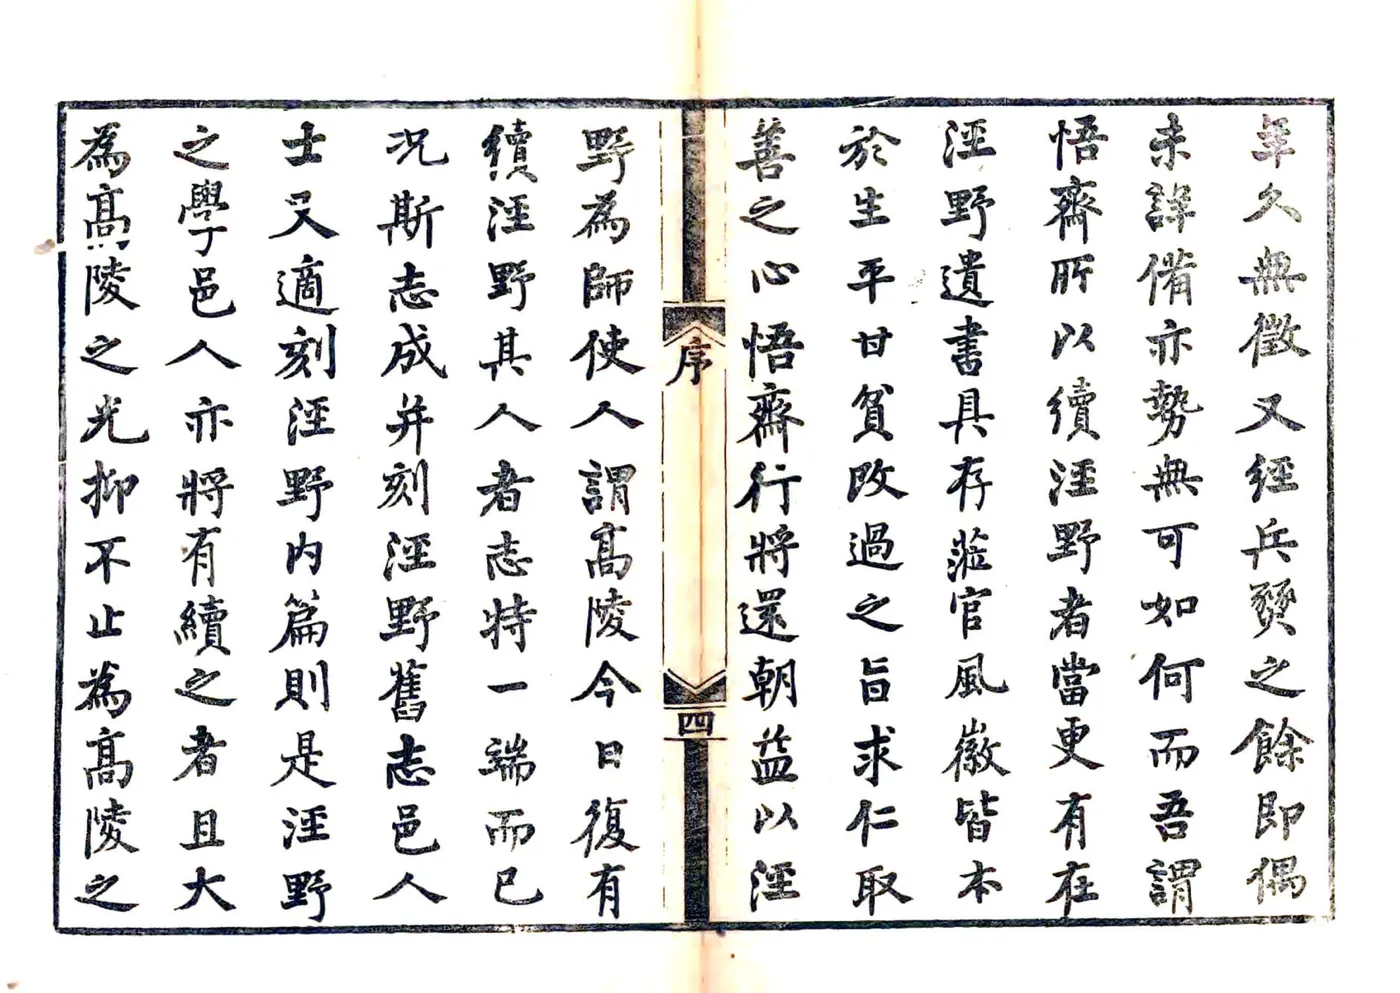 年久無徵又經兵燹之餘即偶
未詳備亦勢無可如何而吾謂
悟齋所以續涇野者當更有在
涇野遺書具存蒞官風徽皆本
於生平甘貧改過之旨求仁取
善之心悟齋行將還朝益以涇
序
四
野為師使人謂高陵今日復有
續涇野其人者志特一端而已
況斯志成并刻涇野舊志邑人
士又適刻涇野內篇則是涇野
之學邑人亦將有續之者且大
為高陵之光抑不止為高陵之